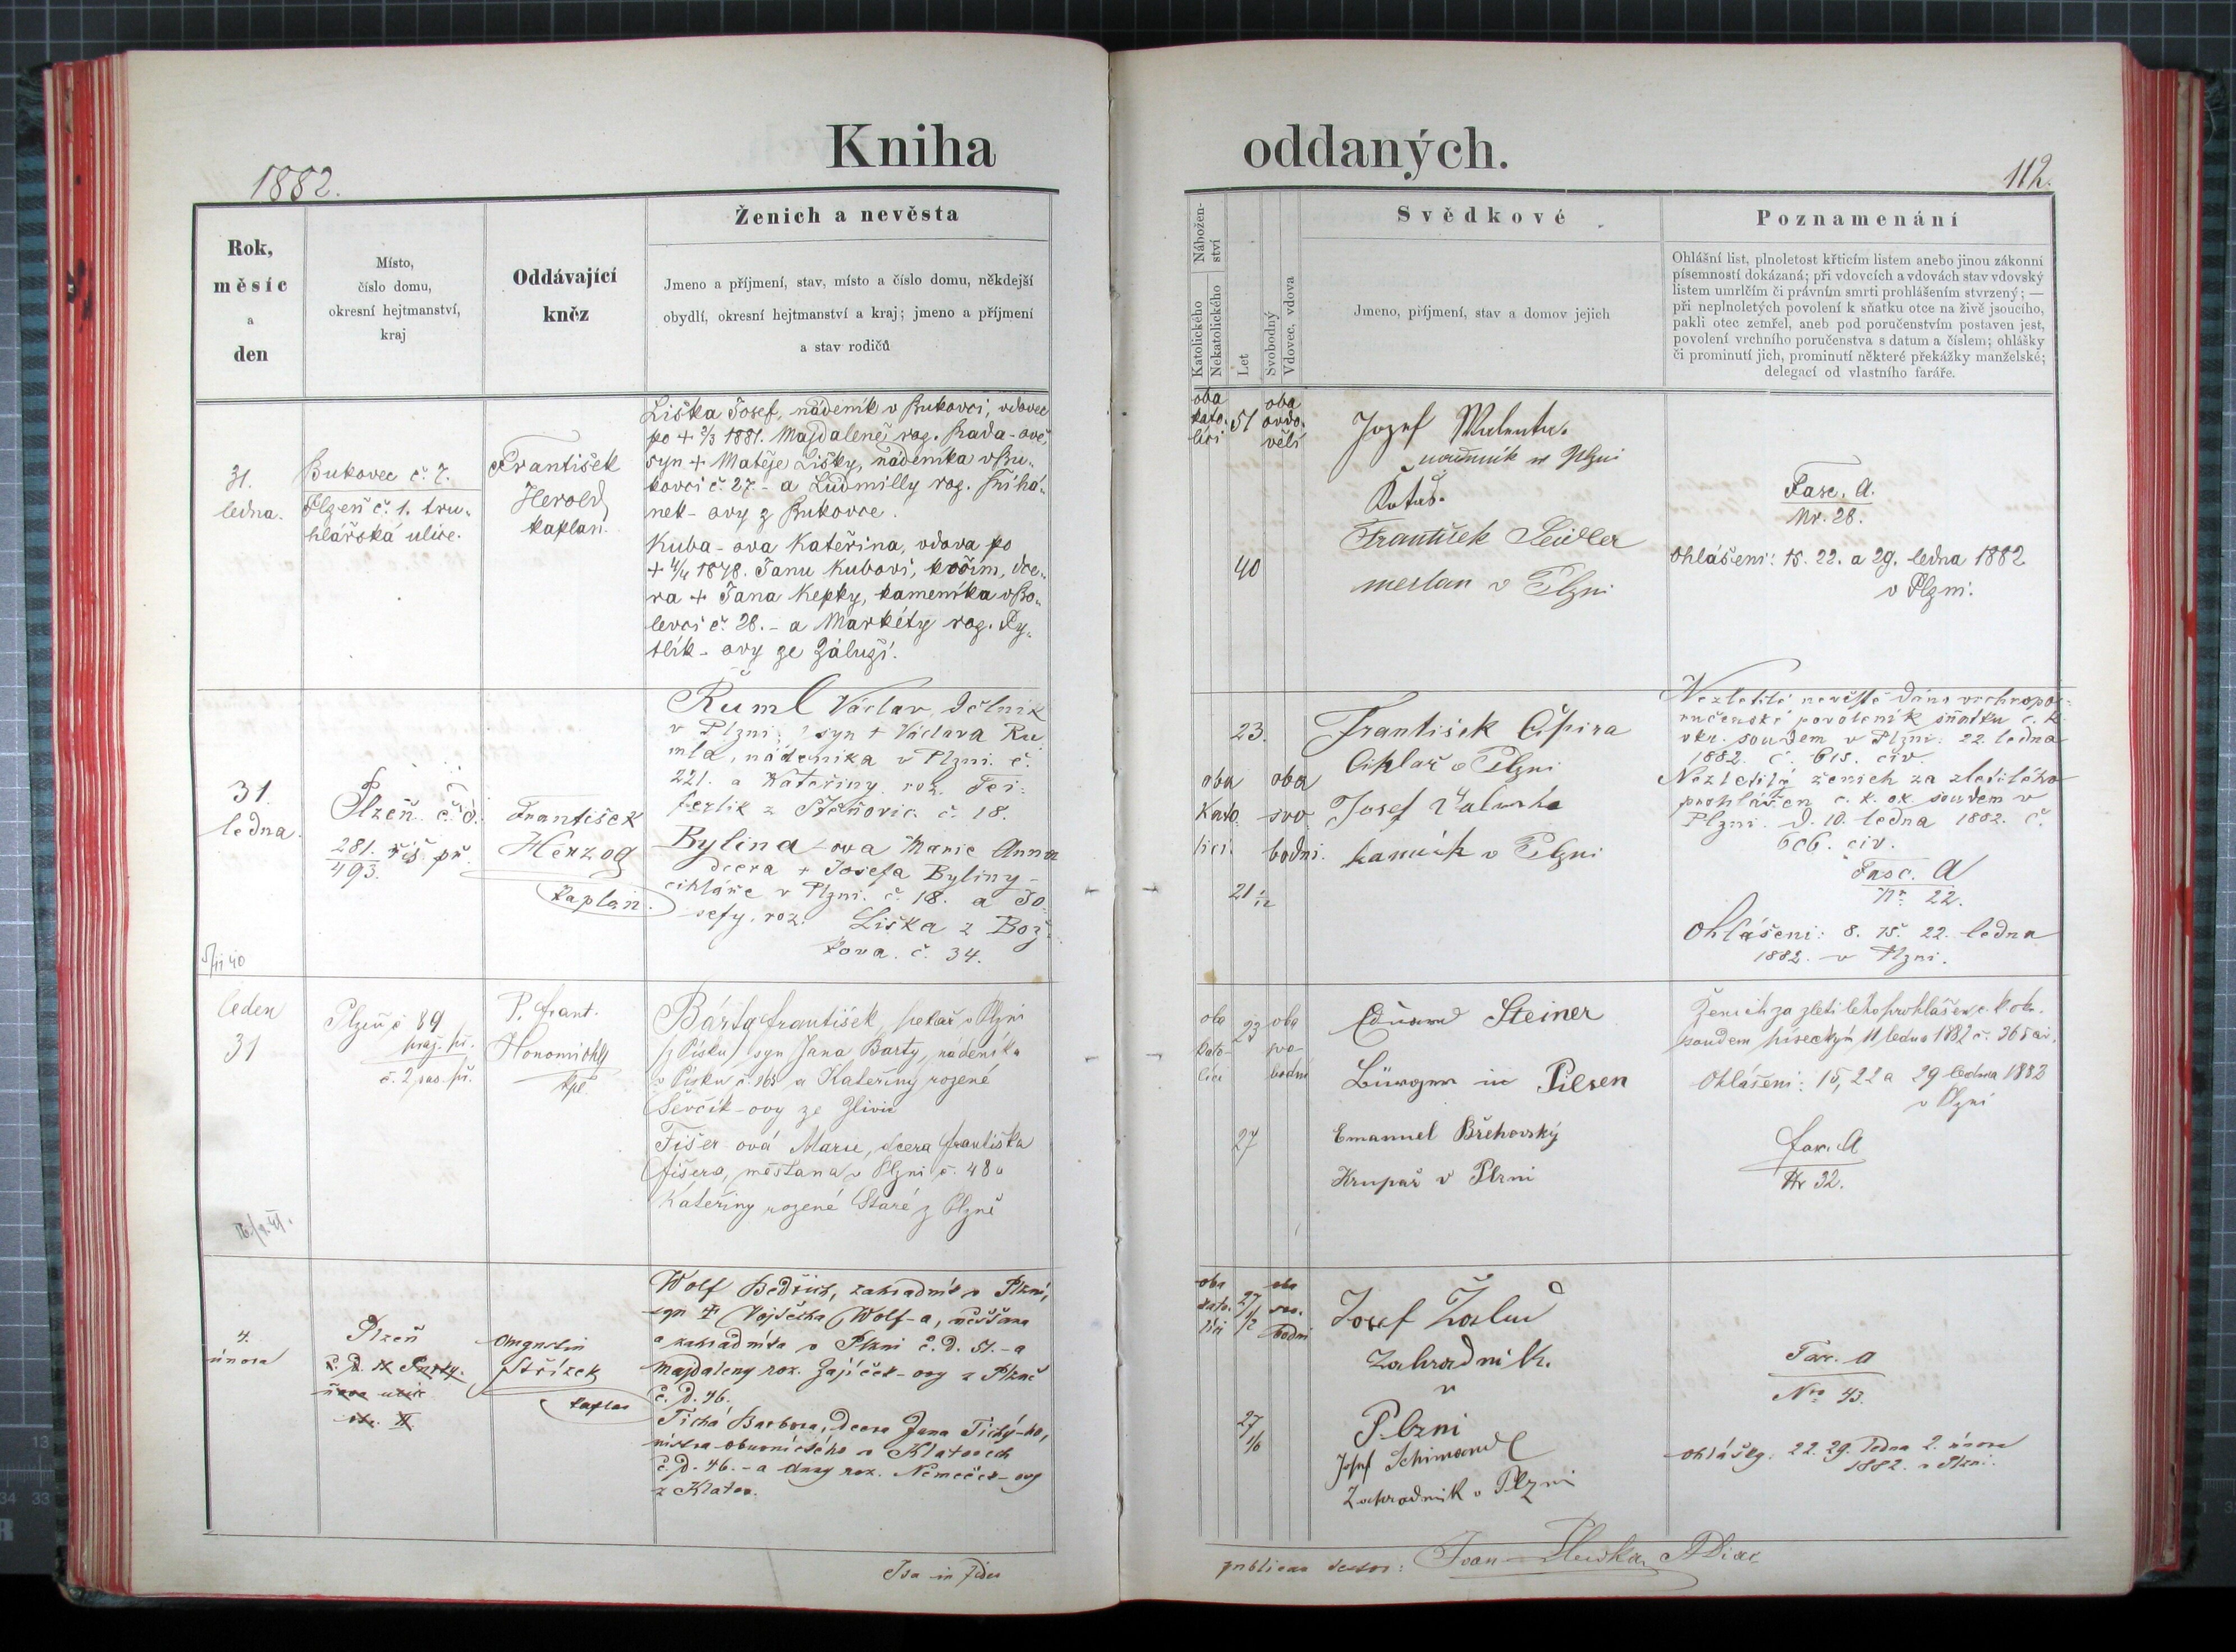 Kniha oddaných.
1882.
112.
Rok,
měsíc
a
den
Místo,
číslo domu,
okresní hejtmanství,
kraj
Oddávající
kněz
Ženich a nevěsta
Jmeno a příjmení, stav, místo a číslo domu, někdejší
obydlí, okresní hejtmanství a kraj; jmeno a příjmení
a stav rodičů
Nábožen-
ství
Katolického
Nekatolického
Let
Svobodný
Vdovec, vdova
Svědkové
Jmeno, příjmení, stav a domov jejich
Poznamenání
Ohlášní list, plnoletost křticím listem anebo jinou zákonní
písemností dokázaná; při vdovcích a vdovách stav vdovský
listem umrlčím či právním smrti prohlášením stvrzený; —
při neplnoletých povolení k sňatku otce na živě jsoucího,
pakli otec zemřel, aneb pod poručenstvím postaven jest,
povolení vrchního poručenstva s datum a číslem; ohlášky
či prominutí jich, prominutí některé překážky manželské;
delegací od vlastního faráře.
31.
ledna.
Bukovec č. 7.
Plzeň č. 1. tru-
hlářská ulice.
František
Herold
kaplan.
Liška Josef, nádeník v Bukovci, vdovec
po + 2/3 1881. Majdaleně roz. Brada-ové,
syn + Matěje Lišky, nádeníka v Bu-
kovci č. 27. - a Ludmilly roz.
nek-ovy z Bukovce.
Kuba-ova Kateřina, vdova po
+ 4/4 1878. Janu Kubovi, kočím, dce-
ra + Jana Kepky, kameníka v Bo-
levci č. 28. - a Markéty roz. Ry-
slík-ovy ze Záluží.
oba
kato-
líci
51
oba
ovdo-
vělí
40
Jozef Walenta.
v Plzni
František Seidler
mešťan v Plzni
Fasc. A.
Nr. 28.
Ohlášení: 15. 22. a 29. ledna 1882
v Plzni.
31.
ledna.
Plzeň č. d.
281. říš. př.
493.
František
Herzog
kaplan.
Ruml Václav, dělník
v Plzni, syn + Václava Ru
mla, nádeníka v Plzni č.
221. a Kateřiny roz. Fei-
ferlik z Štěňovic č. 18.
Bylina-ova Marie Anna
dcera + Josefa Byliny-
cihláře v Plzni č. 18. a Jo-
sefy, roz. Liška z Bož-
kova č. 34.
oba
kato
líci.
23.
21 1/12
oba
svo
bodni.
František Cípira
Cihlář v Plzni
Josef
v Plzni
Nezletilé nevěstě dáno vrchnopo-
ručenské povolení k sňatku c. k.
okr. soudem v Plzni 22. ledna
1882. č. 615. civ.
Nezletilý ženich za zletilého
prohlášen c. k. ok. soudem v
Plzni d. 10. ledna 1882. č.
606. civ.
Fasc. A
Nr. 22.
Ohlášení: 8. 15. 22. ledna
1882. v Plzni.
leden
31
Plzeň č 89
praž. př.
č. 2 sas. př.
P. Frant.
Honomichl
kpl
Bárta František, pekař v Plzni
(z Písku) syn Jana Barty, nádeníka
v Písku č. 165 a Kateřiny rozené
Ševčík-ovy ze Zlivic
Fišer ová Marie, dcera Františka
Fišera, měšťana v Plzni č. 48 a
Kateřiny rozené Staré z Plzně
oba
kato-
líci
23
27
oba
svo-
bodni
Eduard Steiner
Bürger in Pilsen
Emanuel Břehovský
Krupař v Plzni
Ženich za zletilého prohlášen c. k. ok.
soudem píseckým 11 ledna 1882 č. 365 civ.
Ohlášení: 15, 22 a 29 ledna 1882
v Plzni
fasc. A
Nr 32.
4.
února
Plzeň
Augustin
Střízek
kaplan
Wolf Bedřich, zahradník v Plzni,
syn + Vojtěcha Wolf-a, měšťana
a zahradníka v Plzni č. d. 51. - a
Majdaleny roz. Zajíček-ovy z Plzně
č. d. 46.
Tichá Barbora, dcera Jana Tichý-ho,
mistra obuvnického v Klatovech
č. d. 46. - a Anny roz. Němeček-ovy
z Klatov.
oba
kato-
líci
27
1/2
27
1/6
oba
svo-
bodni
Josef Žalud
Zahradník.
v
Plzni
Josef Schimandl
Zahradník v Plzni
Fasc. A
Nro 43.
Ohlášky: 22. 29. ledna 2. února
1882. v Plzni.
Ita in fidem